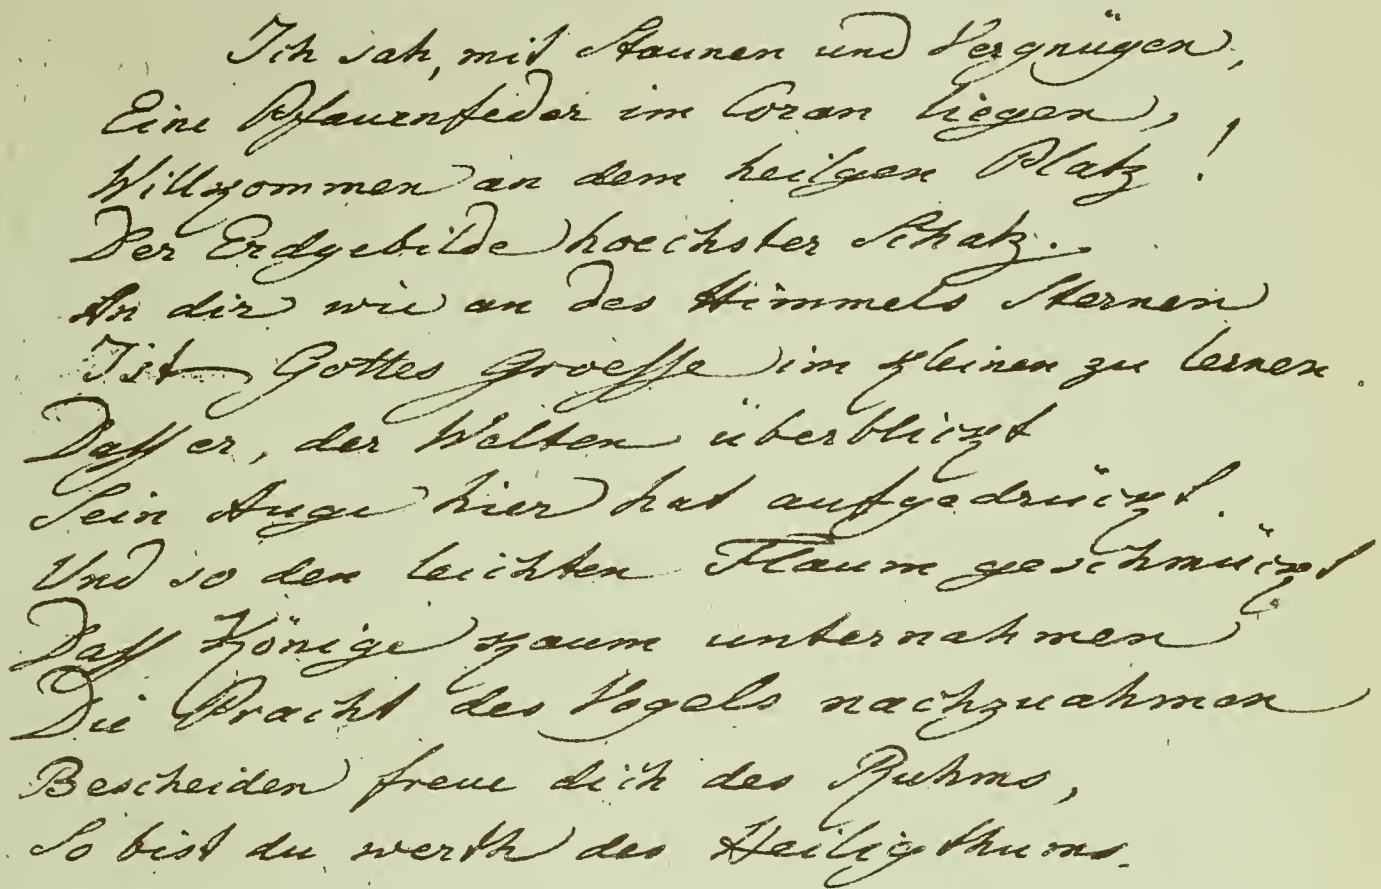 Ich sah, mit Staunen und Vergnügen,
Eine Pfauenfeder im Coran liegen,
Willkommen an dem heilgen Platz!
Der Erdgebilde hoechster Schatz.
An dir wie an des Himmels Sternen
Ist Gottes Groesse im kleinen zu lernen.
Dass er, der Welten überblickt
Sein Auge hier hat aufgedrückt.
Und so den leichten Flaum geschmückt
Dass Könige kaum unternahmen
Die Pracht des Vogels nachzuahmen
Bescheiden freue dich des Ruhms,
So bist du werth des Heiligthums.